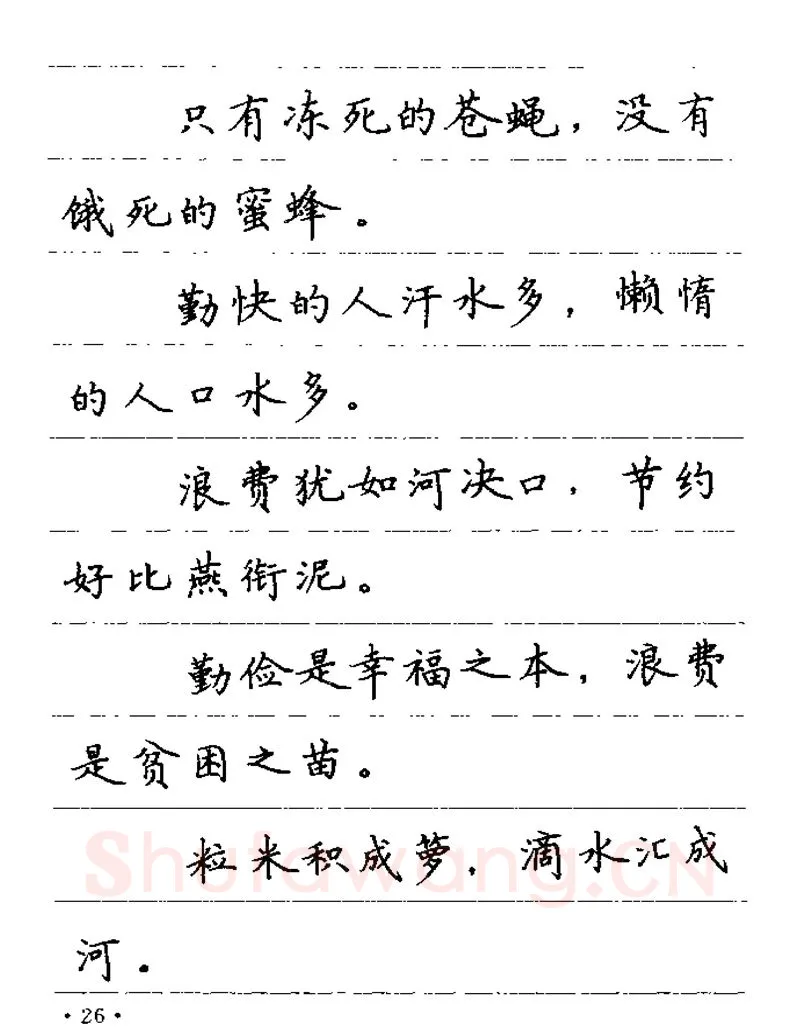 只有冻死的苍蝇，没有
饿死的蜜蜂。
勤快的人汗水多，懒惰
的人口水多。
浪费犹如河决口，节约
好比燕衔泥。
勤俭是幸福之本，浪费
是贫困之苗。
粒米积成萝，滴水汇成
河。
Shufawang.CN
·26·